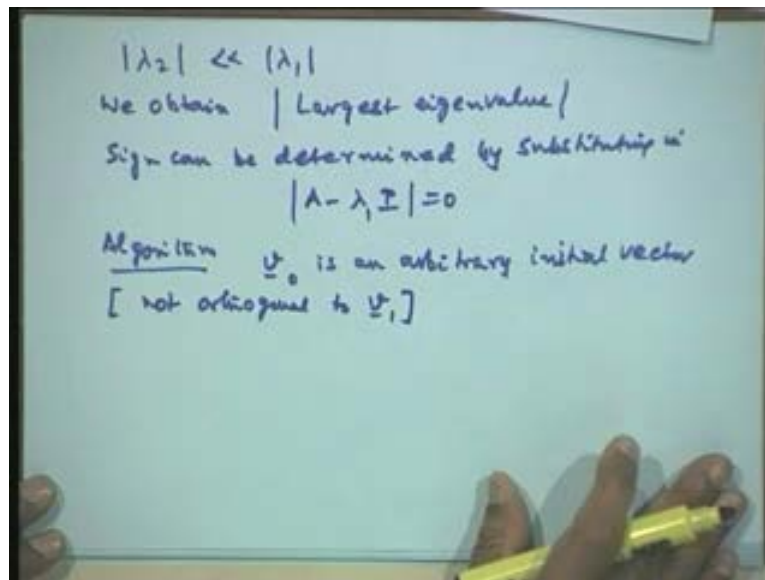 |λ₂| << |λ₁|
We obtain | Largest eigenvalue |
Sign can be determined by substituting in
|A - λ₁ I| = 0
Algorithm v₀ is an arbitrary initial vector
[ not orthogonal to v₁ ]